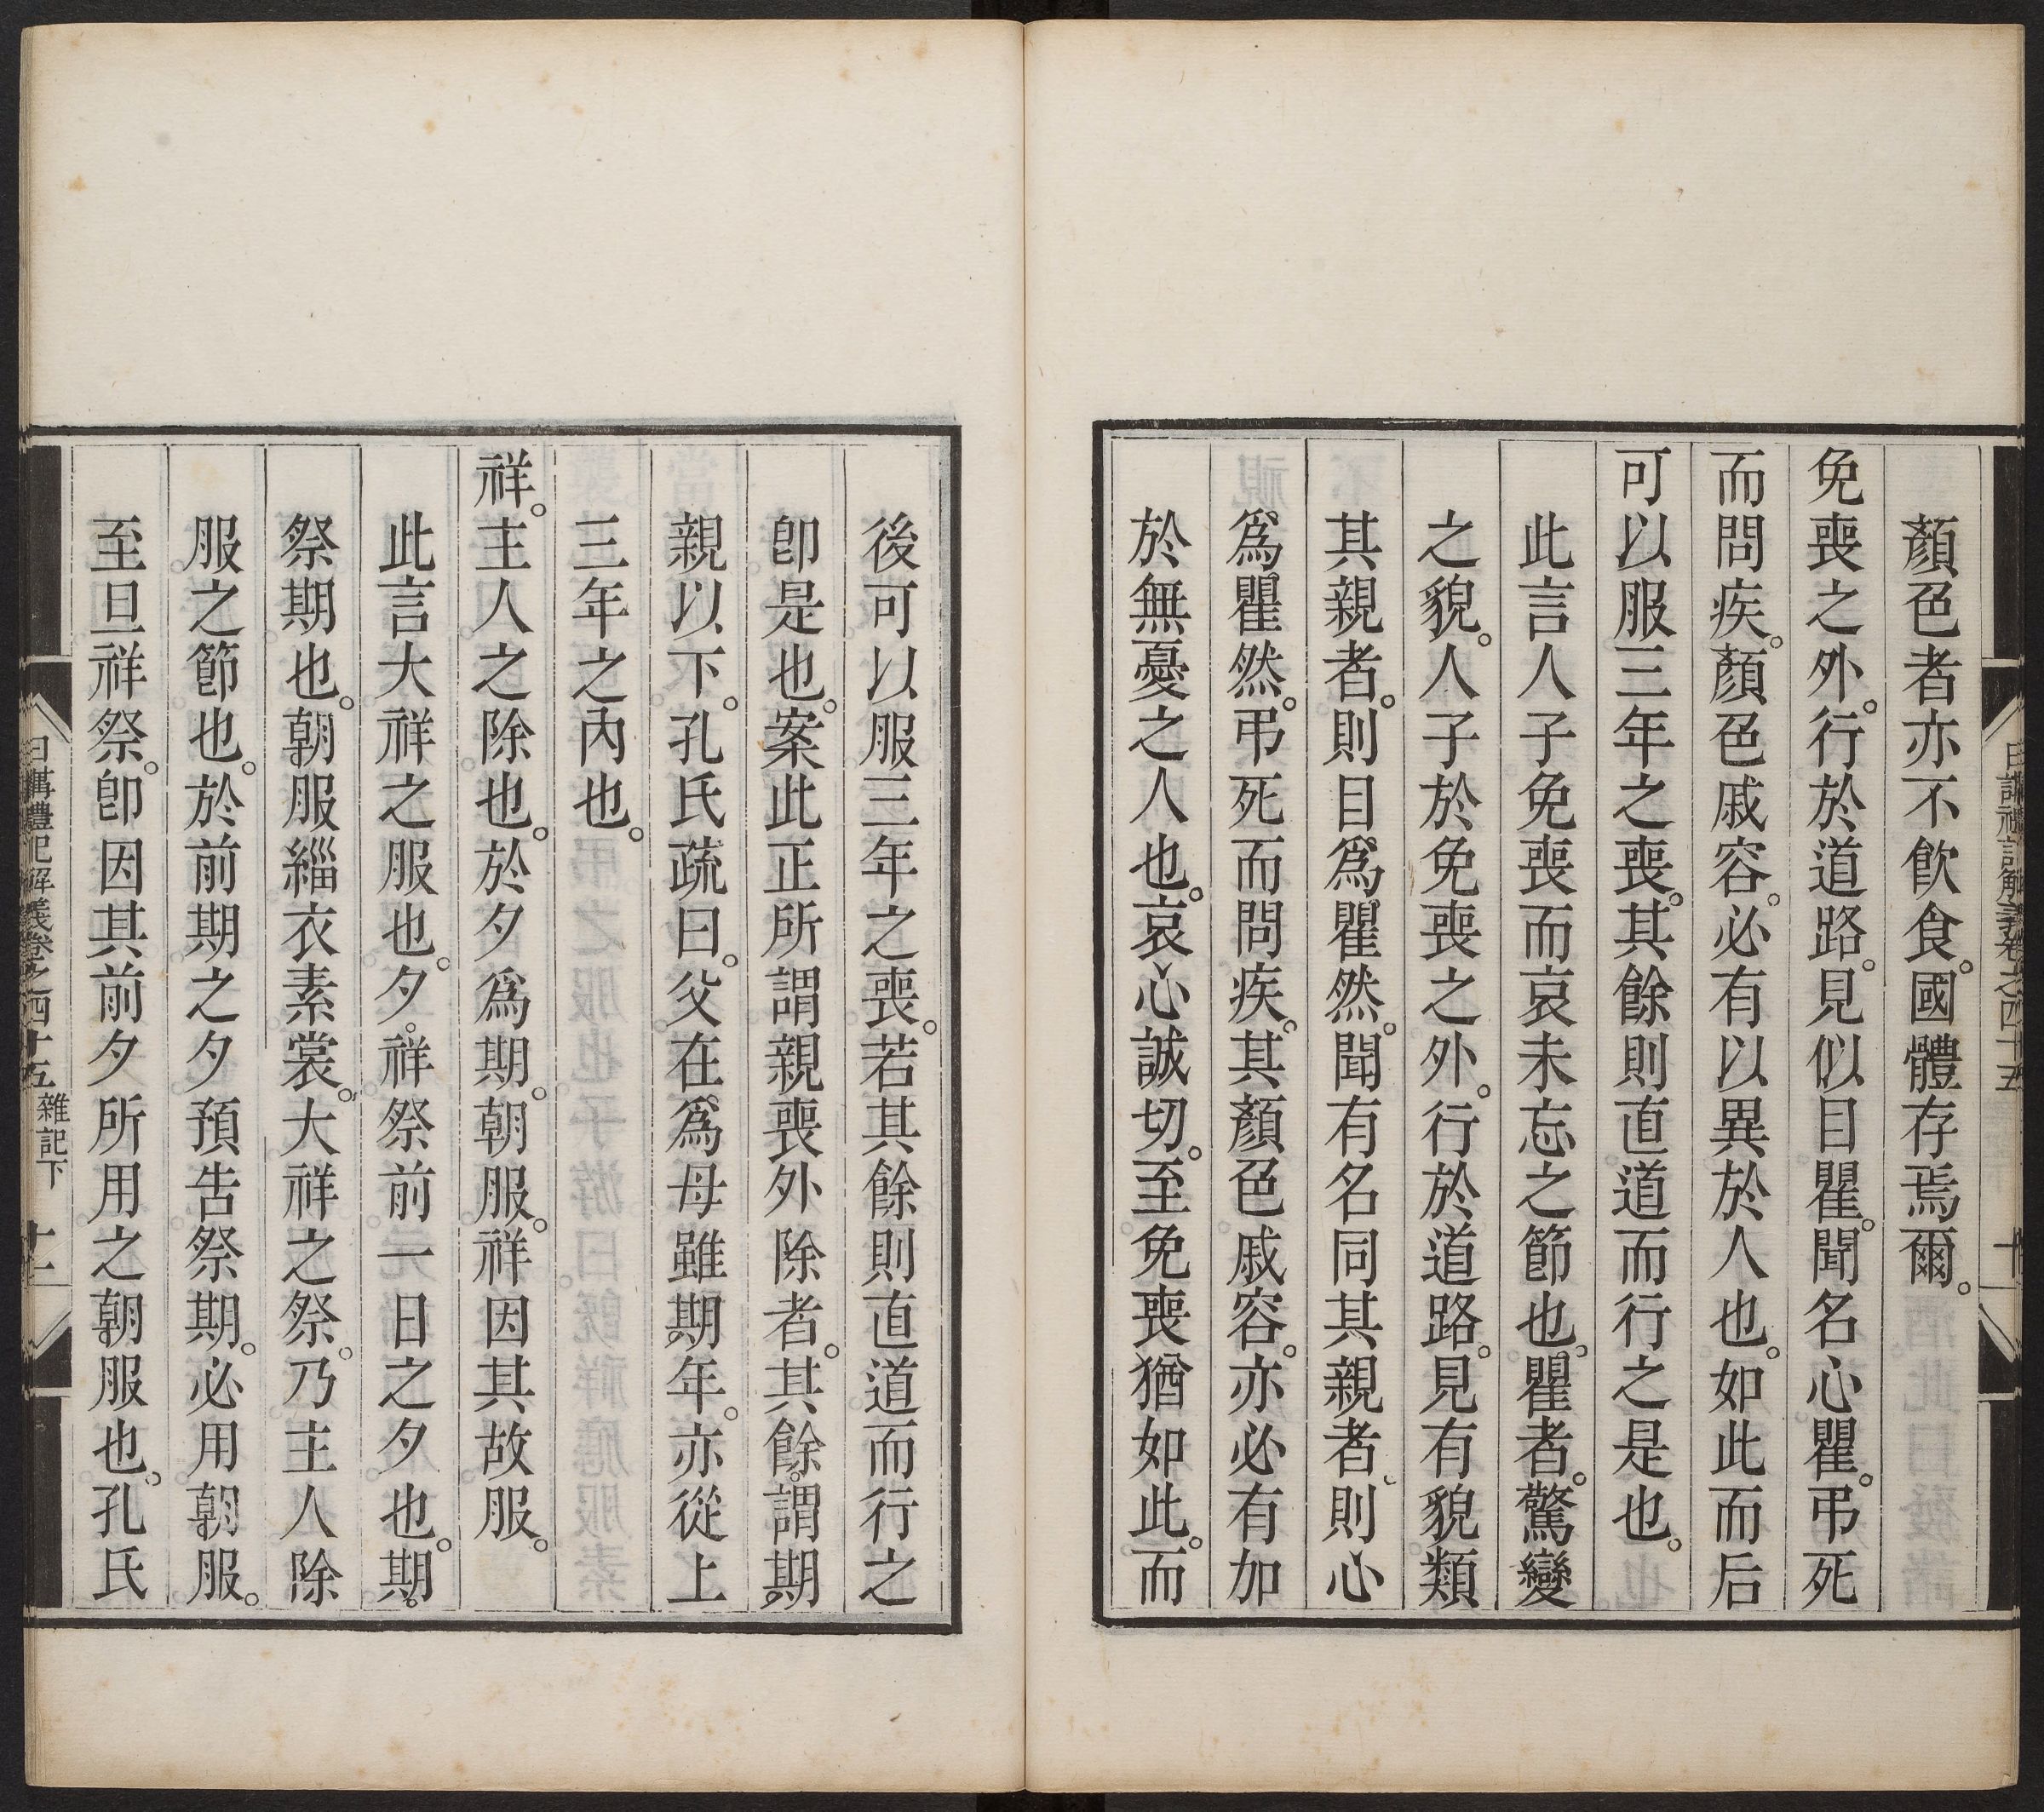 日講禮記解義卷之四十五
十
顏色者亦不飲食。國體存焉爾。
免喪之外。行於道路。見似目瞿。聞名心瞿。弔死
而問疾。顏色戚容。必有以異於人也。如此而后
可以服三年之喪。其餘則直道而行之是也。
此言人子免喪而哀未忘之節也。瞿者。驚變
之貌。人子於免喪之外。行於道路。見有貌類
其親者。則目爲瞿然。聞有名同其親者、則心
爲瞿然。弔死而問疾。其顏色戚容。亦必有加
於無憂之人也。哀心誠切。至免喪猶如此。而
後可以服三年之喪。若其餘則直道而行之
卽是也。案此正所謂親喪外除者。其餘。謂期
親以下。孔氏疏曰。父在。爲母雖期年。亦從上
三年之內也。
祥。主人之除也。於夕爲期。朝服。祥因其故服。
此言大祥之服也。夕。祥祭前一日之夕也。期。
祭期也。朝服緇衣素裳。大祥之祭。乃主人除
服之節也。於前期之夕預告祭期。必用朝服。
至旦祥祭。卽因其前夕所用之朝服也。孔氏
日講禮記解義卷之四十五 雜記下
十一